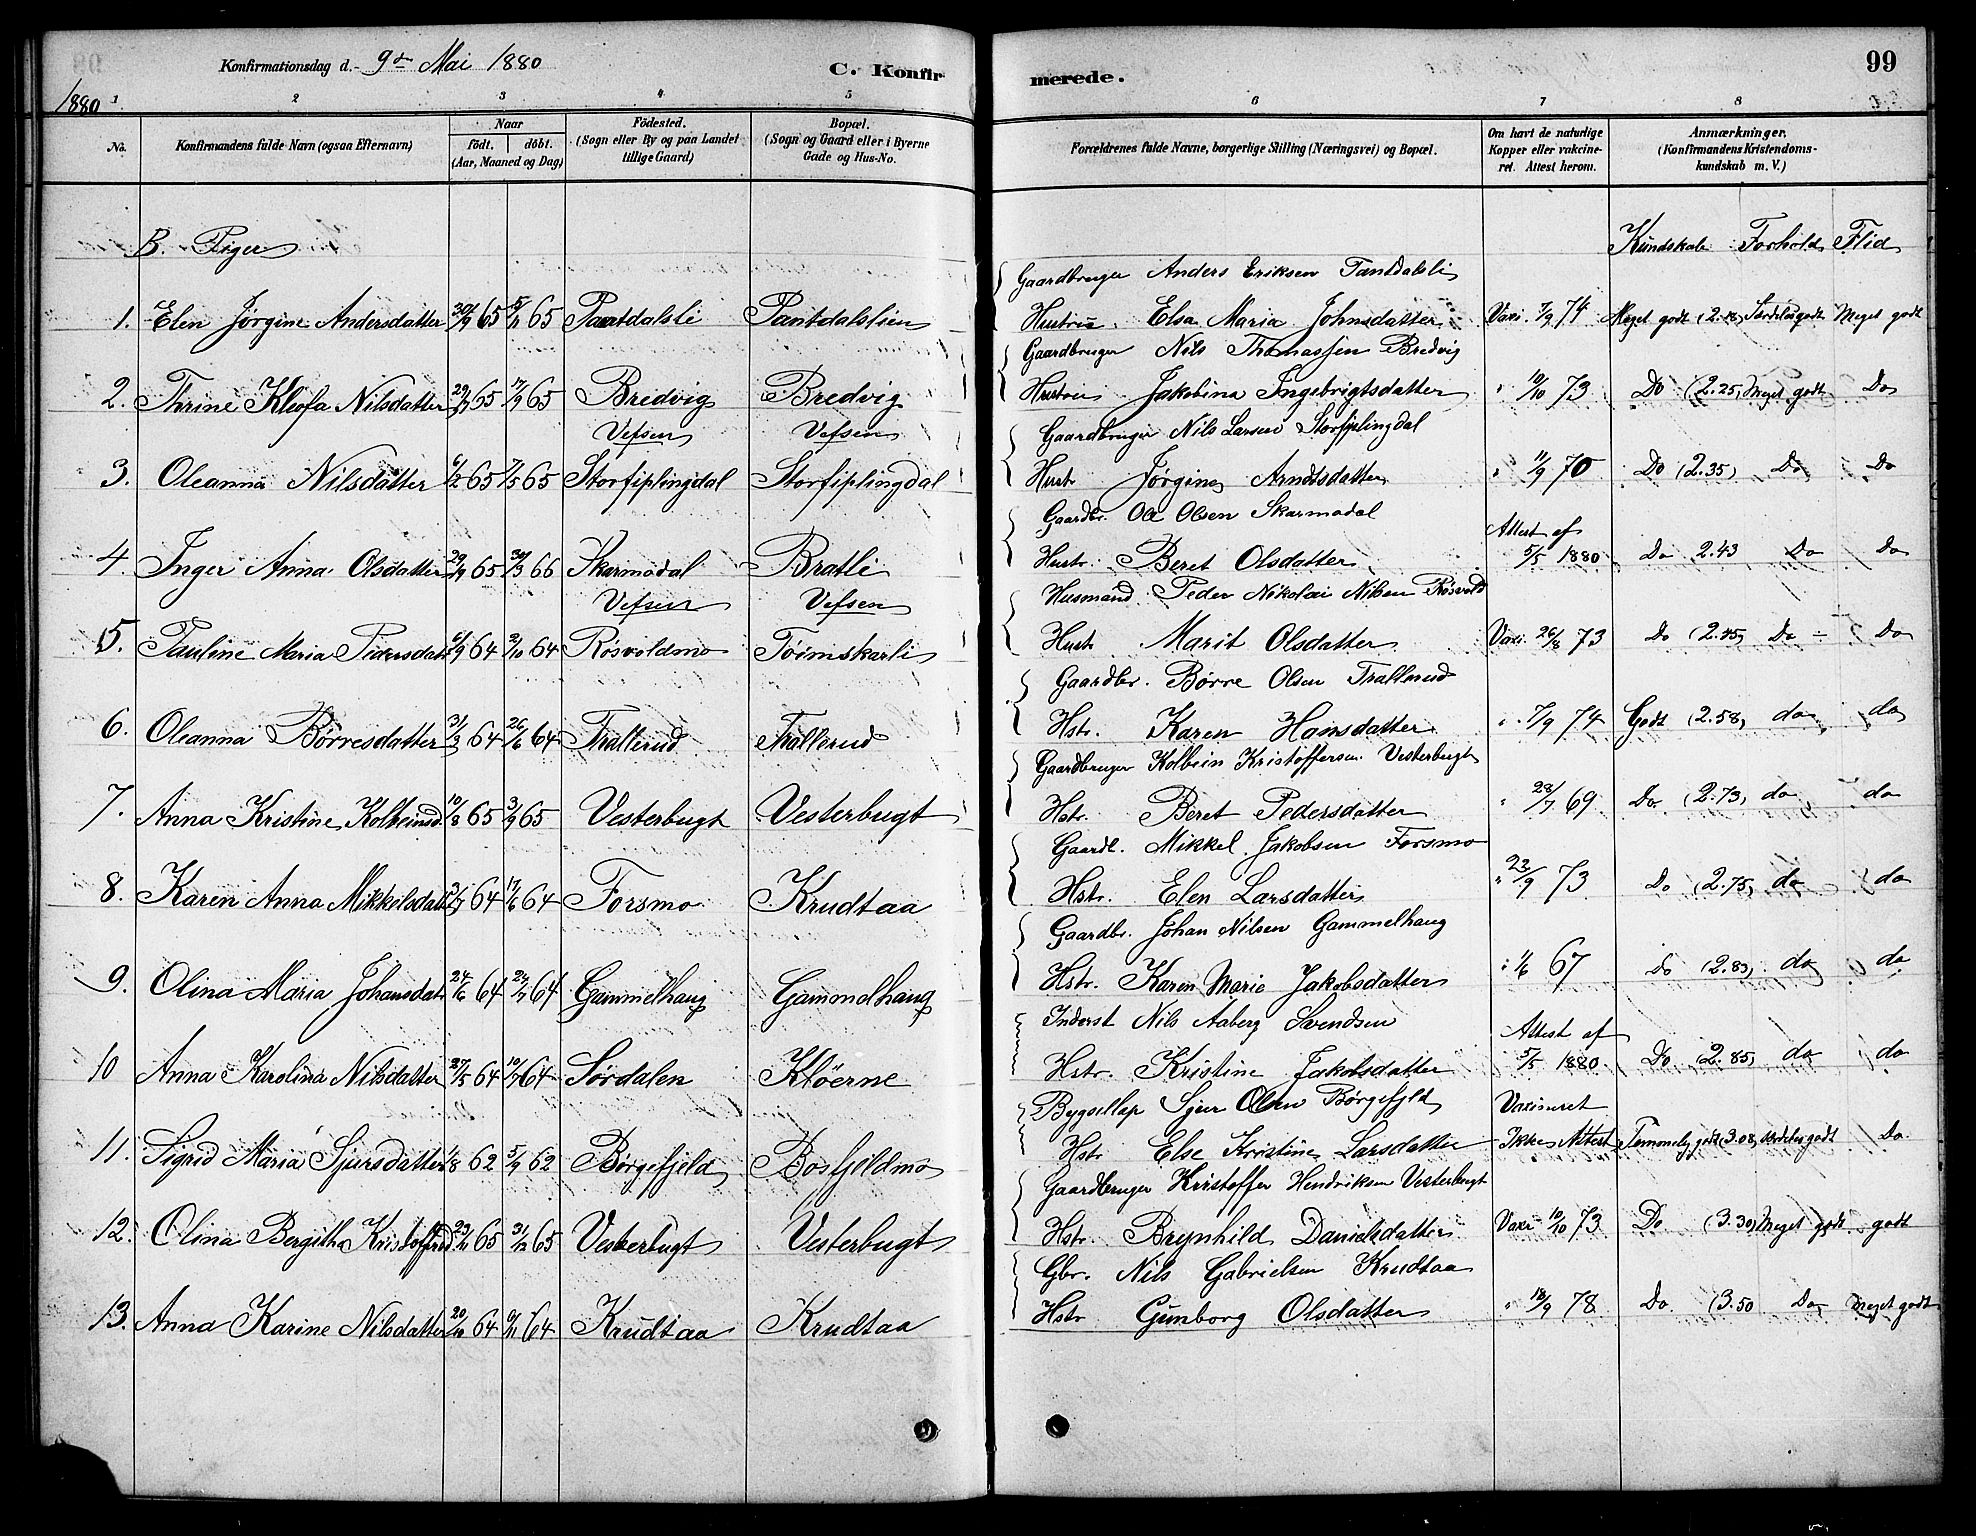 Konfirmationsdag d. 9de Mai 1880 C. Konfirmerede. 99
1880 1 2 3 4 5 6 7 8
No. Konfirmandens fulde Navn (ogsaa Efternavn) Naar født. døbt. (Aar, Maaned og Dag) Fødested. (Sogn eller By og paa Landet tillige Gaard) Bopæl. (Sogn og Gaard eller i Byerne Gade og Hus-No. Forældrenes fulde Navne, borgerlige Stilling (Næringsvei) og Bopæl. Om havt de naturlige Kopper eller vakcineret. Attest herom. Anmærkninger. (Konfirmandens Kristendomskundskab m. V.)
B. Piger Kundskab Forhold Flid
Gaardbruger Anders Eriksen Pantdalsli
1. Elen Jørgine Andersdatter 65 65 Pantdalsli Pantdalslien Hustru Elsa Maria Johnsdatter Vaxi. 7/9 74 Meget godt (2.18) Særdeles godt Meget godt
Gaardbruger Nils Thomassen Bredvig
2. Thrine Kleofa Nilsdatter 65 17/9 65 Bredvig Bredvig Hustru Jakobina Ingebrigtsdatter " 10/10 73 Do (2.25) Meget godt Do
Vefsen Vefsen Gaardbruger Nils Larsen Storfiplingdal
3. Oleanna Nilsdatter 6/2 65 7/5 65 Storfiplingdal Storfiplingdal Hustr. Jørgine Arndtsdatter " 11/9 70 Do (2.35) Do Do
Gaardbr. Ole Olsen Skarmodal Attest af
4. Inger Anna Olsdatter 29/9 65 30/3 66 Skarmodal Bratli Hustr. Beret Olsdatter 5/5 1880 Do 2.43 Do Do
Vefsen Vefsen Husmand Peder Nikolai Nilsen Røsvold
5. Pauline Maria Pedersdatt 6/9 64 2/10 64 Røsvoldmo Tørmskarli Hustr. Marit Olsdatter Vaxi. 26/8 73 Do (2.45) Do Do
Gaardbr. Børre Olsen Trallerud
6. Oleanna Børresdatter 31/3 64 26/6 64 Trallerud Trallerud Hstr. Karen Hansdatter " 7/9 74 Godt (2.58) do do
Gaardbruger Kolbein Kristoffersen Vesterbugt
7. Anna Kristine Kolbeinsd. 10/8 65 3/9 65 Vesterbugt Vesterbugt Hstr. Beret Pedersdatter " 28/7 69 Do. (2.73) do do
Gaardb. Mikkel Jakobsen Forsmo
8. Karen Anna Mikkelsdatt 64 17/6 64 Forsmo Krudtaa Hstr. Elen Larsdatter " 22/9 73 Do (2.75) do do
Gaardbr. Johan Nilsen Gammelhaug
9. Olina Maria Johansdat. 24/6 64 24/7 64 Gammelhaug Gammelhaug Hstr. Karen Marie Jakobsdatter " 1/6 67 Do (2.83) do do
Inderst Nils Aaberg Svendsen Attest af
10 Anna Karolina Nilsdatter 27/5 64 10/7 64 Sørdalen Kløerne Hstr. Kristine Jakobsdatter 5/5 1880 Do (2.85) do do
Bygsellap Sjur Olsen Børgefjeld Vaxineret
11. Sigrid Maria Sjursdatter 1/8 62 5/9 62 Børgefjeld Bosfjeldmo Hstr. Else Kristine Larsdatter Ikke Attest Temmelig godt (3.08) særdeles godt Do.
Gaardbruger Kristoffer Hendriksen Vesterbugt
12. Olina Bergitha Kristoffersd. 23/11 65 31/12 65 Vesterbugt Vesterbugt Hstr. Brynhild Danielsdatter Vaxi 10/10 73 Do (3.30) Meget godt godt
Gbr. Nils Gabrielsen Krudtaa
13. Anna Karine Nilsdatter 20/10 64 6/11 64 Krudtaa Krudtaa Hstr Gunborg Olsdatter " 18/9 78 Do (3.50 Do Meget godt